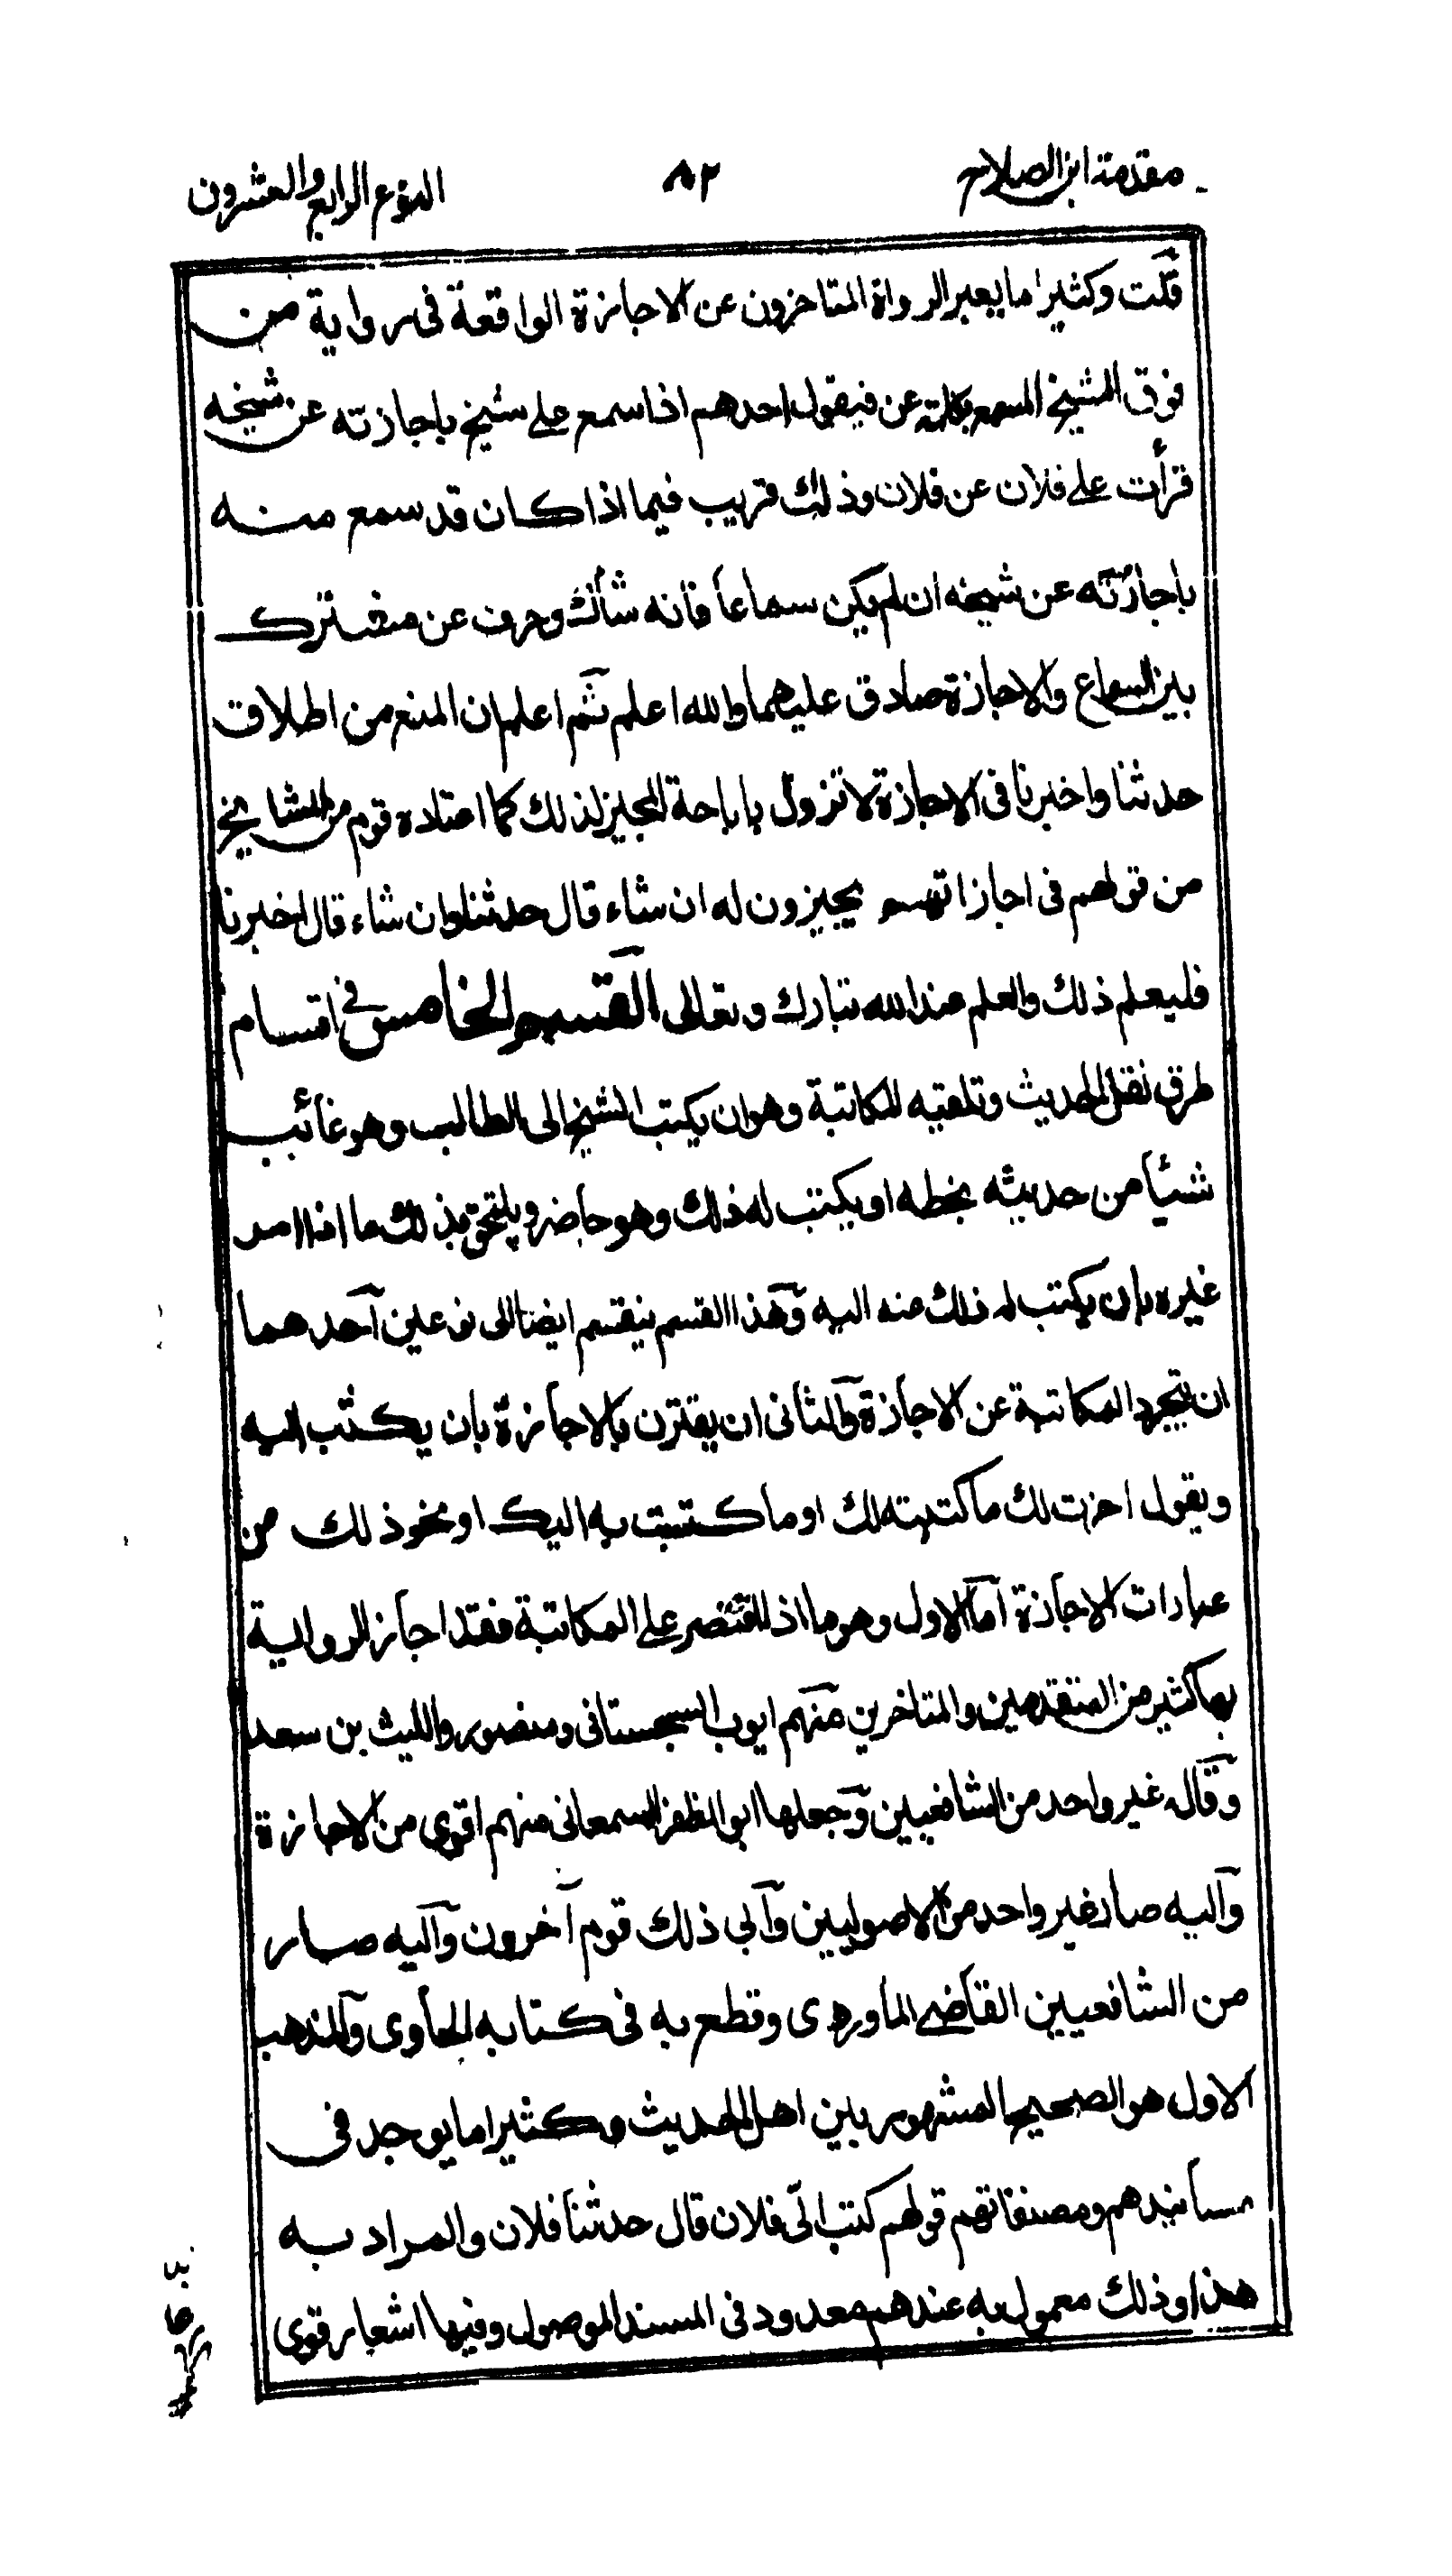 مقدمة ابن الصلاح ٨٢ النوع الرابع والعشرون
قلت وكثيرا ما يعبر الرواة المتاخرون عن الاجازة الواقعة فى رواية من
فوق الشيخ المسمع بكلمة عن فيقول احدهم اذا سمع على شيخ باجازته عن شيخه
قرأت على فلان عن فلان وذلك قريب فيما اذا كان قد سمع منه
باجازته عن شيخه ان لم يكن سماعا فانه شاك وحرف عن مشترك
بين السماع والاجازة صادق عليهما والله اعلم ثم اعلم ان المنع من اطلاق
حدثنا واخبرنا فى الاجازة لا تزول باباحة المجيز لذلك كما اعتاده قوم من المشايخ
من قولهم فى اجازاتهم يجيزون له ان شاء قال حدثنا وان شاء قال اخبرنا
فليعلم ذلك والعلم عند الله تبارك وتعالى القسم الخامس فى اقسام
طرق نقل الحديث وتلقيه المكاتبة وهو ان يكتب الشيخ الى الطالب وهو غائب
شيئا من حديثه بخطه او يكتب له ذلك وهو حاضر ويلتحق بذلك ما اذا امر
غيره بان يكتب له ذلك عنه اليه وهذا القسم ينقسم ايضا الى نوعين احدهما
ان يتجرد المكاتبة عن الاجازة والثانى ان يقترن بالاجازة بان يكتب اليه
ويقول اجزت لك ما كتبته لك او ما كتبت به اليك او نحو ذلك من
عبارات الاجازة اما الاول وهو ما اذا اقتصر على المكاتبة فقد اجاز الرواية
بها كثير من المتقدمين والمتاخرين منهم ايوب السجستانى ومنصور والليث بن سعد
وقاله غير واحد من الشافعيين وجعلها ابو المظفر السمعانى منهم اقوى من الاجازة
واليه صار غير واحد من الاصوليين وابى ذلك قوم آخرون واليه صار
من الشافعيين القاضى الماوردى وقطع به فى كتابه الحاوى والمذهب
الاول هو الصحيح المشهور بين اهل الحديث وكثيرا ما يوجد فى
مسانيدهم ومصنفاتهم قولهم كتب الىّ فلان قال حدثنا فلان والمراد به
هذا وذلك معمول به عندهم معدود فى المسند الموصول وفيها اشعار قوى